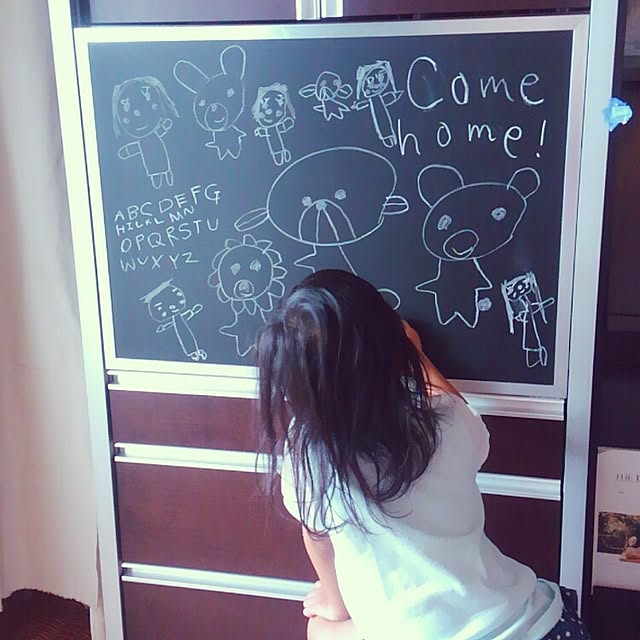 Come
home!
ABCDEFG
HILKL MN
OPQRSTU
WUXYZ
THE